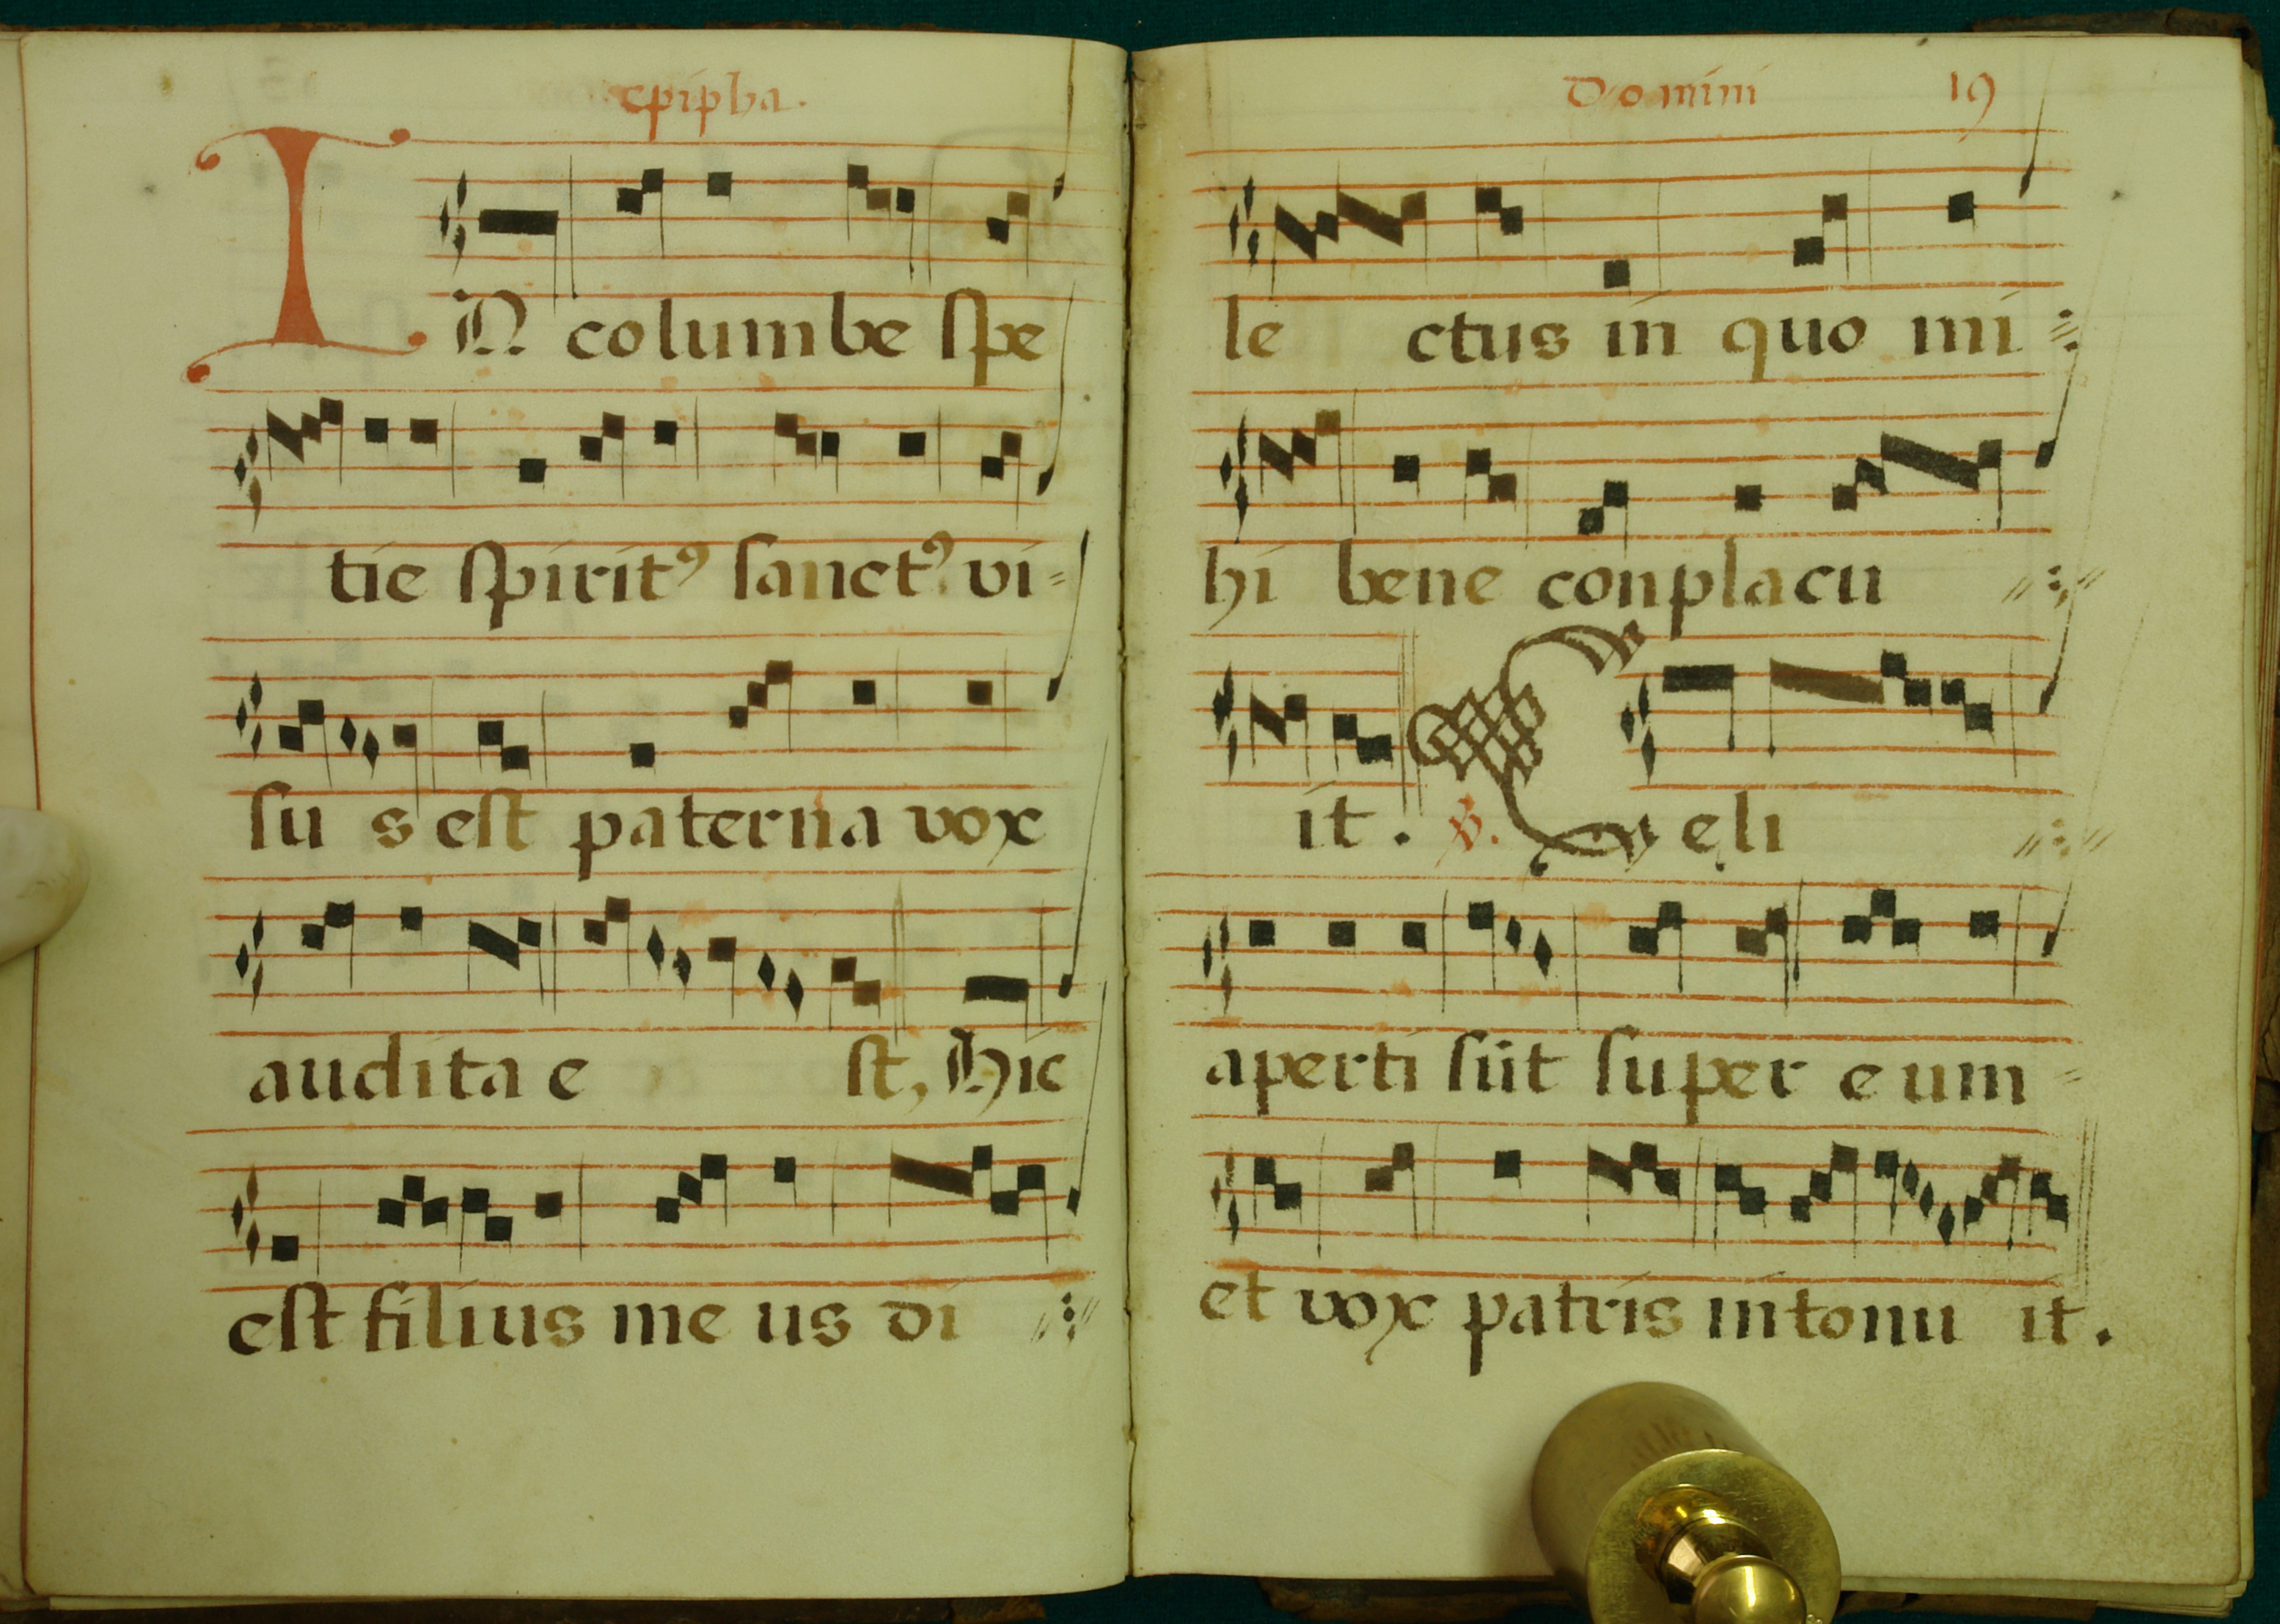 epipha.
IN columbe spe
tie spiritꝰ sanctꝰ vi=
su s est paterna vox
audita e st, Hic
est filius me us di
Domini 19
le ctus in quo mi
hi bene conplacu
it. ℣. Celi
aperti sūt super eum
et vox patris intonu it.